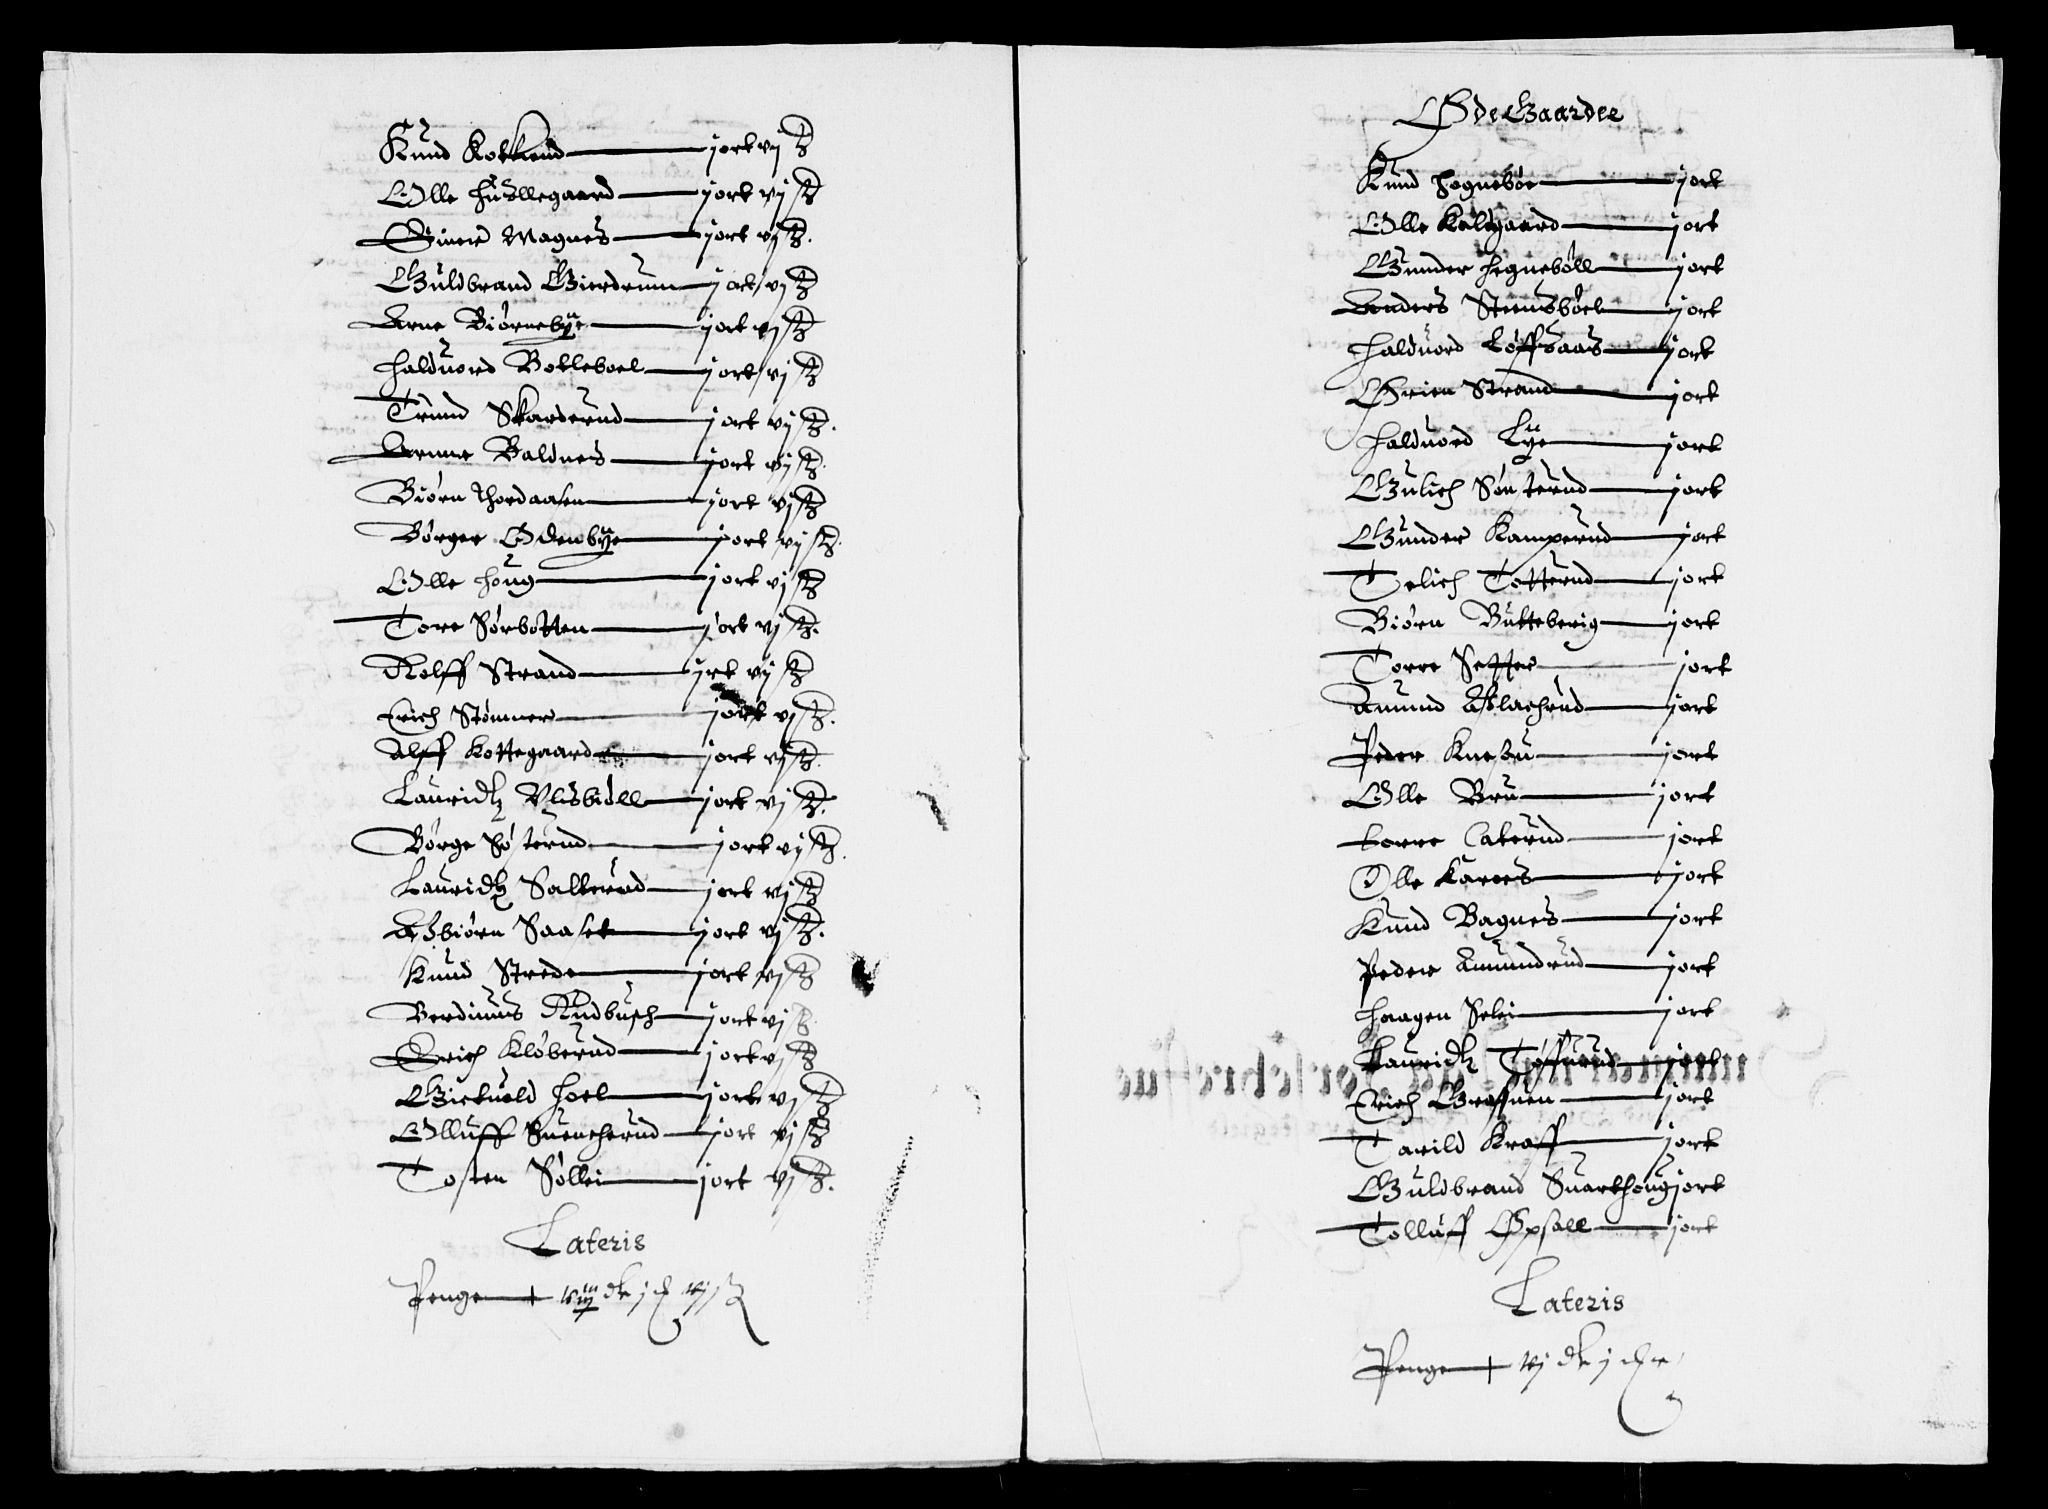 Knud Kokkend jort vj ß
Olle Husllegaard jort vj ß
Siuer Magnes jort vj ß.
Guldbrand Gierdrum jort vj ß
Arne Biørnebye jort vj ß
Halduord Bottleboel jort vj ß
Trund Skarderud jort vj ß.
Arnne Baldnes jort vj ß.
Biørn Thordaasen jort vj ß
Børger Odenbye jort vj ß.
Olle Houg jort vj ß
Tore Sørbotten jort vj ß.
Rolff Strand jrt vj ß
Erich Stømner jort vj ß.
Alff Kottegaard jort vj ß.
Lauridtz Vlisbiøll jort vj ß.
Børge Søsterud jort vj ß.
Lauridtz Salterud jort vj ß
Asbiørn Saaset jort vj ß.
Knud Strede jort vj ß
Berdinus Rudbusch jort vj ß
Erich Kløberud jort vj ß
Gietuold Hoel jort vj ß
Olluff Suencherud jort vj ß
Tosten Søllei jort vj ß.
Lateris
Penge vj ß
Øde Gaarder
Knud Hognebøe jort
Olle Kalgaard jort
Gunder Hegnebøll jort
Anders Steensbøel jort
Halduord Løffsaas jort
Ørien Strand jort
Halduord Lye jort
Gulich Sønsterud jort
Gunder Kamperud jort
Telich Totterud jort
Biørn Butteberig jort
Torre Setter jort
Amund Aslachrud jort
Peder Knessu jort
Olle Bru jort
Torre Caterud jort
Olle Karoes jort
Knud Bagnes jort
Peder Amundrud jort
Haagen Selei jort
Lauridtz Tøffterud jort
Erich Greffuen jort
Tarild Kraff jort
Guldbrand Suarthoug jort
Tolluff Opsall jort
Lateris
Penge vj dlr j ort